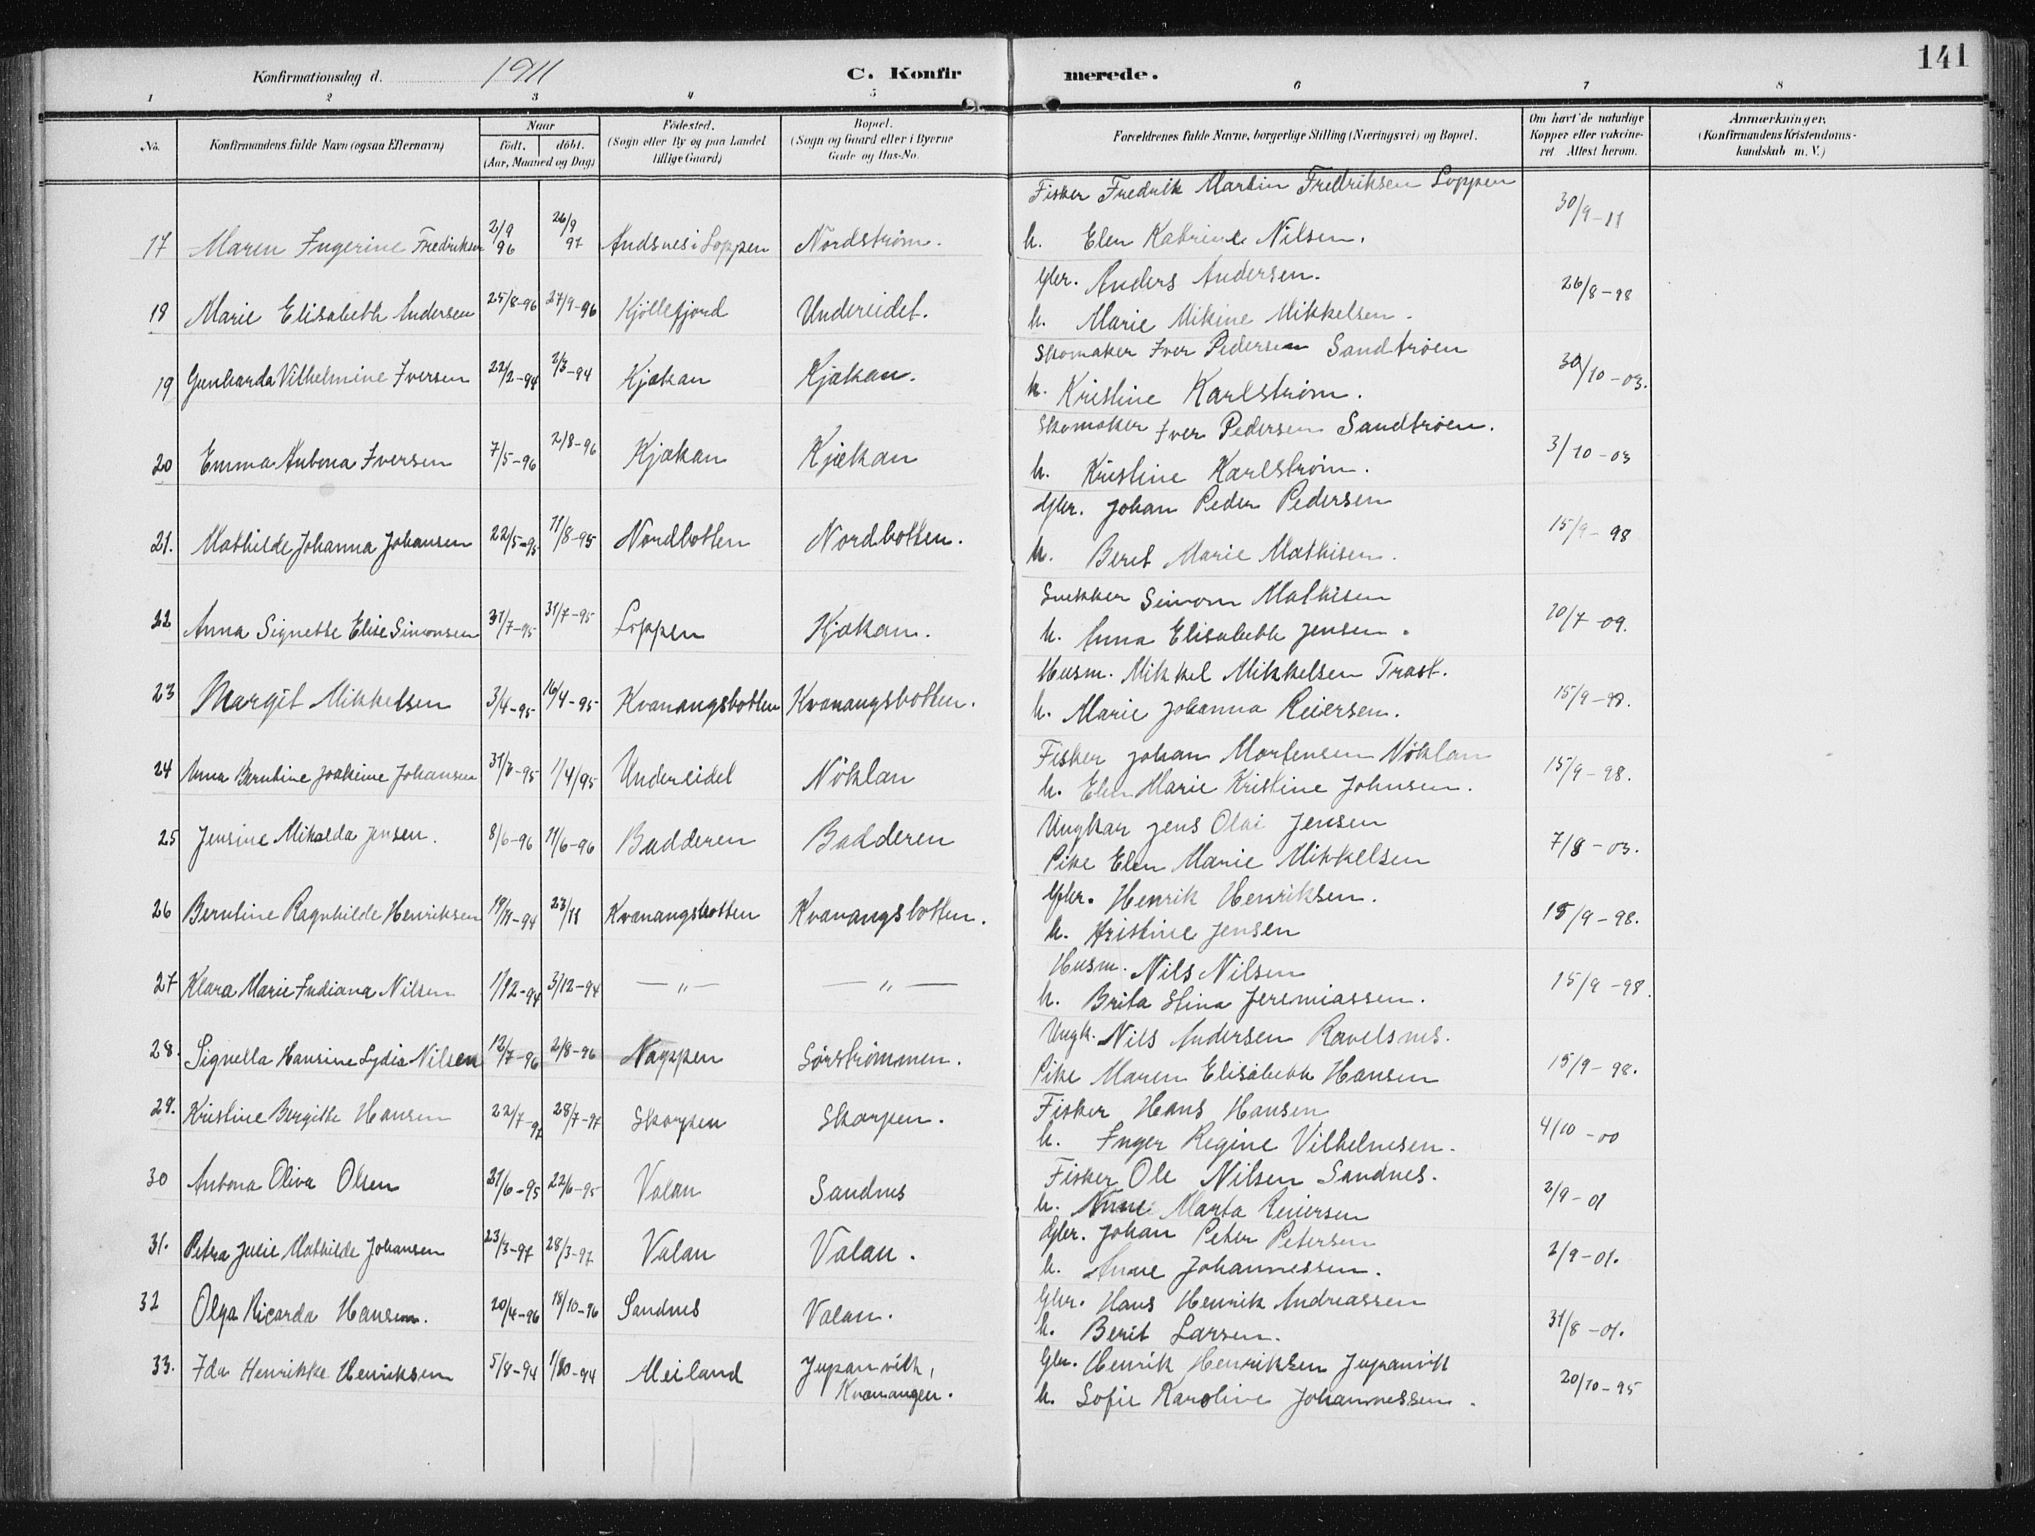 141
Konfirmationsdag d. 1911 C. Konfirmerede.
1 2 3 4 5 6 7 8
No. Konfirmandens fulde Navn (ogsaa Efternavn) Naar født. døbt. (Aar, Maaned og Dag) Fødested. (Sogn eller By og paa Landet tillige Gaard) Bopæl. (Sogn og Gaard eller i Byerne Gade og Hus-No. Forældrenes fulde Navne, borgerlige Stilling (Næringsvei) og Bopæl. Om havt de naturlige Kopper eller vakcineret Attest herom. Anmærkninger. (Konfirmandens Kristendomskundskab m. V.)
Fisker Fredrik Martin Fredriksen Loppen
17 Maren Ingerine Fredriksen 2/9 96 26/9 97 Andsnes i Loppen Nordstrøm. h. Elen Katrine Nilsen. 30/9-11
Gbr. Anders Andersen.
18 Marie Elisabeth Andersen 25/8-96 27/9-96 Kjøllefjord Undereidet. h. Marie Mikine Mikkelsen. 26/8-98
Skomaker Iver Pedersen Sandtrøen
19 Gunharda Vilhelmine Iversen 22/2-94 2/3-94 Kjækan Kjækan. h. Kristine Karlstrøm. 30/10-03.
Skomaker Iver Pedersen Sandtrøen.
20 Emma Antona Iversen 7/5-96 2/8-96 Kjækan Kjækan h. Kristine Karlstrøm. 3/10-03
Gbr. Johan Peder Pedersen
21. Mathilde Johanna Johansen 22/5-95 11/8-95 Nordbotten Nordbotten. h. Beret Marie Mathisen. 15/9-98
Snekker Simon Mathisen
22 Anna Signette Elise Simonsen 31/7-95 31/7-95 Loppen Kjækan. h. Anna Elisabeth Jensen. 20/7-09.
Husm. Mikkel Mikkelsen Trast.
23 Margit Mikkelsen 3/4-95 16/4-95 Kvænangsbotten Kvænangsbotten. h. Marie Johanna Reiersen. 15/9-98.
Fisker Johan Mortensen Nøklan
24 Anna Berntine Joakime Johansen 31/3-95 1/4/95 Undereidet Nøklan h. Elen Marie Kristine Johnsen. 15/9-98.
Ungkar Jens Olai Jensen
25 Jensine Mikalda Jensen. 8/6-96 11/6-96 Badderen Badderen Pike Elen Marie Mikkelsen 7/8-03.
Gbr. Henrik Henriksen.
26 Berntine Ragnhilde Henriksen 19/11-94 23/11 Kvænangsbotten Kvænangsbotten. h. Kristine Jensen 15/9-98.
Husm. Nils Nilsen
27 Klara Marie Indiana Nilsen 1/12-94 3/12-94 — " — — " — h. Brita Stina Jeremiassen. 15/9-98.
Ungk. Nils Andersen Ravelsnes.
28. Signella Hansine Lydia Nilsen 12/7-96 2/8-96 Nappen Sørstrømmen. Pike Maren Elisabeth Hansen 15/9-98.
Fisker Hans Hansen
29. Kristine Bergitte Hansen 22/7-97 28/7-97 Skorpen Skorpen. h. Inger Regine Vilhelmsen. 4/10-00
Fisker Ole Nilsen Sandnes.
30 Antona Oliva Olsen 21/6-95 22/6-95 Valan Sandnes h. Anne Marta Reiersen 2/9-01
Gbr. Johan Peter Petersen
31. Petra Julie Mathilde Johansen 23/3-97 28/3-97 Valan Valan. h. Anne Johannessen. 2/9-01.
Gbr. Hans Henrik Andreassen
32 Olga Ricarda Hansen. 20/4-96 18/10-96 Sandnes Valan. h. Berit Larsen. 31/8-01.
Gbr. Henrik Henriksen Jupanvik
33. Ida Henrikke Henriksen 5/8-94 1/10-94 Meiland Jupanvik, Kvænangen. h. Sofie Karoline Johannessen. 20/10-95